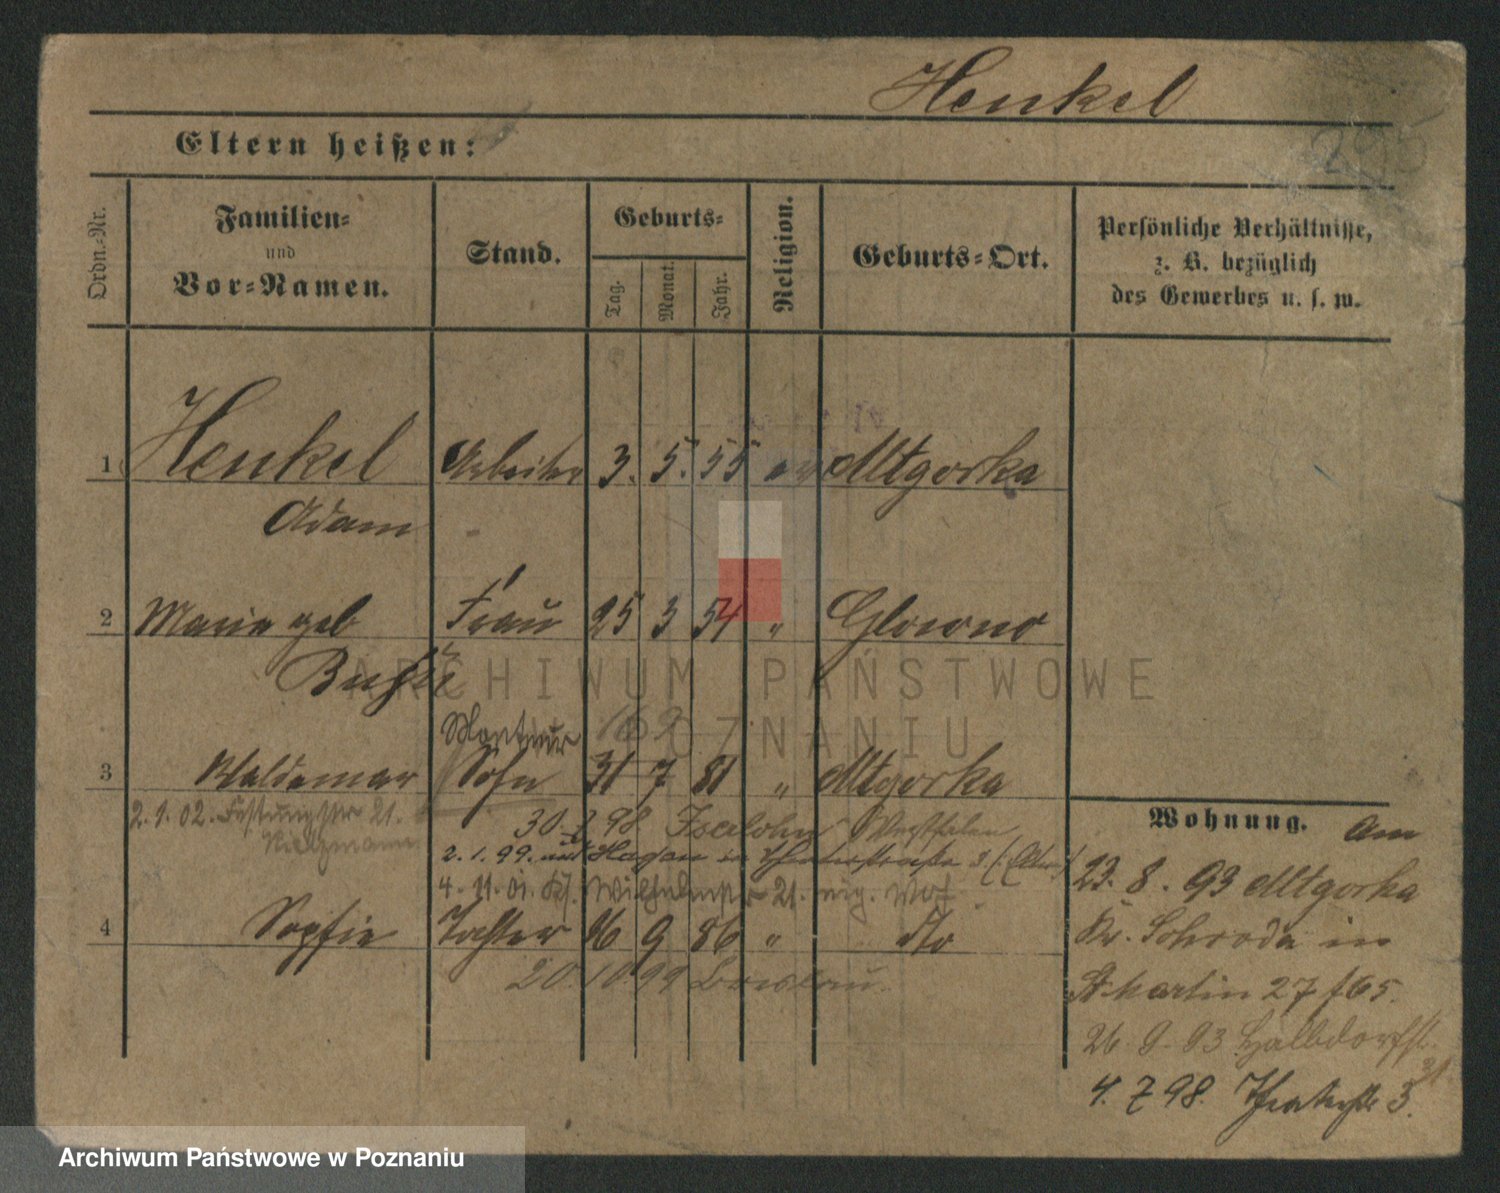 Henkel
295
Eltern heißen:
Ordn.-Nr.
Familien-
und
Vor-Namen.
Stand.
Geburts-
Tag.
Monat.
Jahr.
Religion.
Geburts-Ort.
Persönliche Verhältnisse,
z. B. bezüglich
des Gewerbes u. s. w.
1 Henkel Arbeiter 3. 5. 55 ev Altgorka
Adam
2 Marie geb Frau 25 3 54 " Glowno
ARCHIWUM PAŃSTWOWE
W POZNANIU
Monteur
3 Waldemar Sohn 31 7 81 " Altgorka
2. 1. 02. Festungstr 21.
30 98 Iserlohn Westfalen
2. 1. 99. aus Hagen in Theaterstraße 3
4. 11. 01. Wilhelmstr 21. eig.
4 Sophie Tochter 16 9 86 " dto
20. 10 99 Breslau
Wohnung. Am
23. 8. 93 Altgorka
Kr. Schroda in
St Martin 27 f 65.
26. 9. 93 Halbdorfstr.
31
4. 7 98. Theaterstr 3.
Archiwum Państwowe w Poznaniu